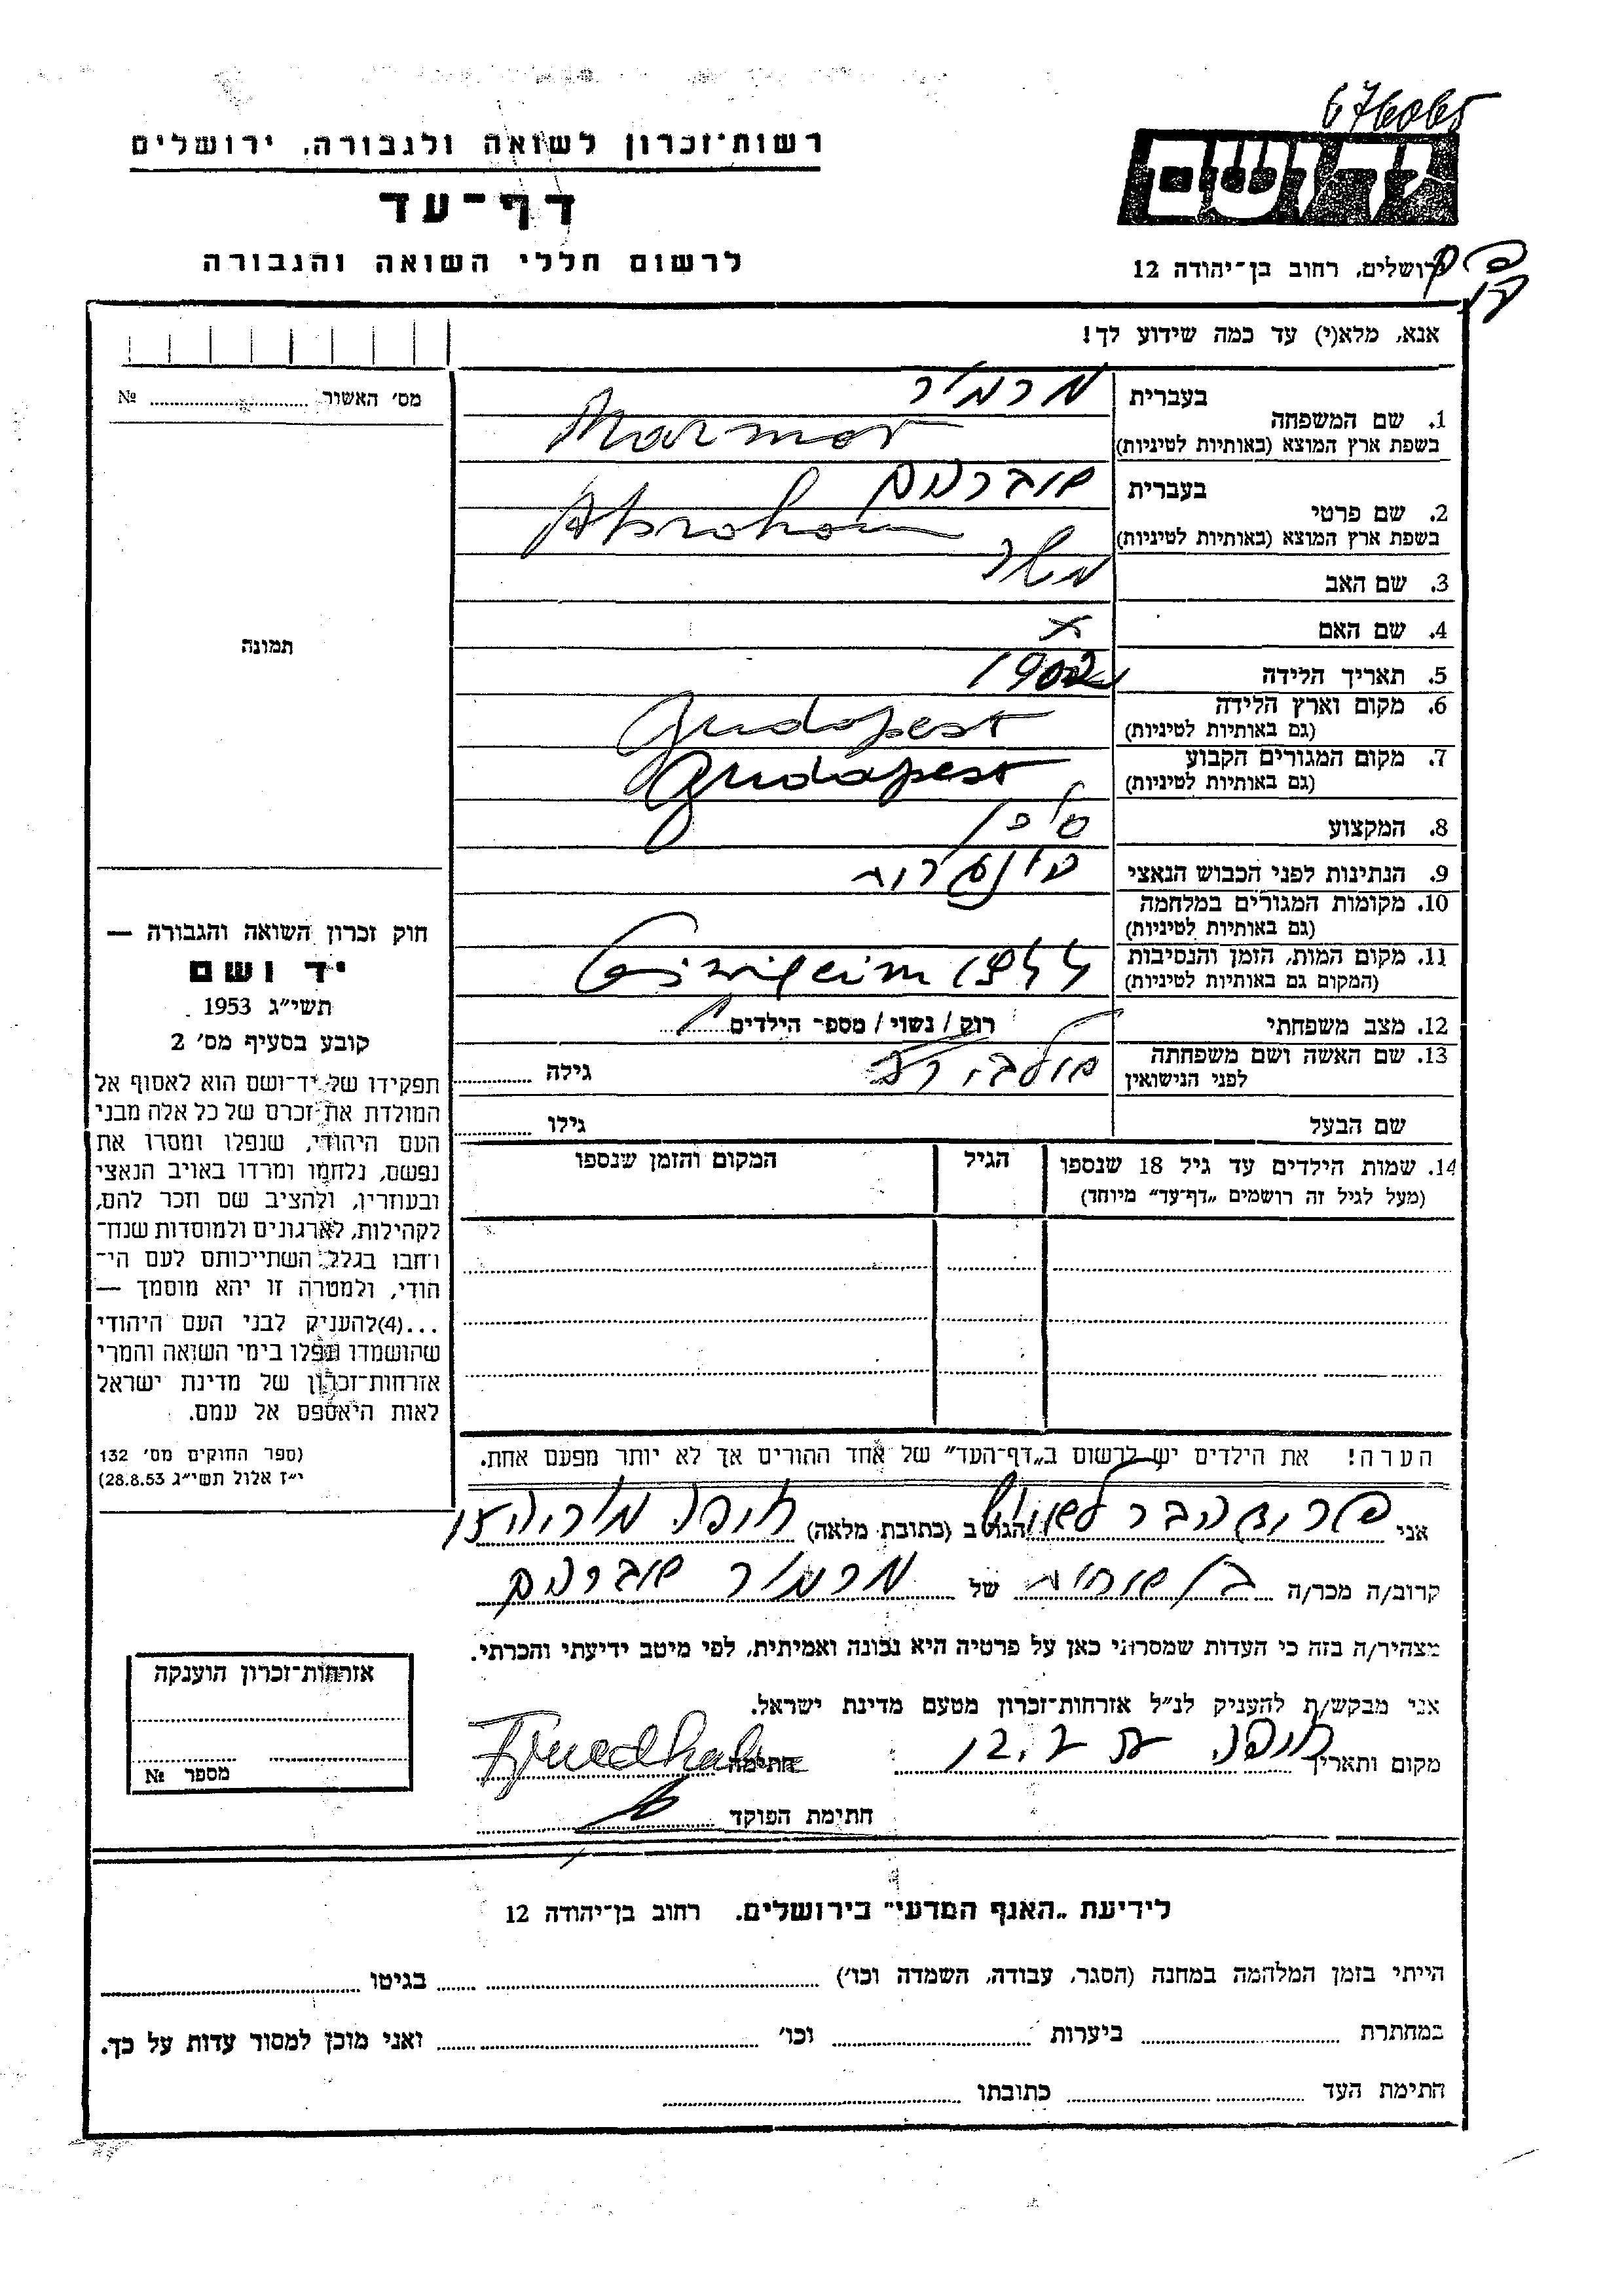 676065
רשות־זכרון לשואה ולגבורה, ירושלים
דף־עד
לרשום חללי השואה והגבורה
יד ושם
ירושלים, רחוב בן־יהודה 12
אנא, מלא(י) עד כמה שידוע לך!
מס' האשור № 
1. שם המשפחה
בעברית מרמור
בשפת ארץ המוצא (באותיות לטיניות) Marmor
2. שם פרטי
בעברית אברהם
בשפת ארץ המוצא (באותיות לטיניות) Abraham
3. שם האב משה
4. שם האם x
5. תאריך הלידה 1902
6. מקום וארץ הלידה
(גם באותיות לטיניות) Budapest
7. מקום המגורים הקבוע
(גם באותיות לטיניות) Budapest
8. המקצוע סוכן
9. הנתינות לפני הכבוש הנאצי הונגרית
10. מקומות המגורים במלחמה
(גם באותיות לטיניות)
11. מקום המות, הזמן והנסיבות
(המקום גם באותיות לטיניות) 1944
12. מצב משפחתי רוק / נשוי / מספר הילדים 1
13. שם האשה ושם משפחתה
לפני הנישואין
גילה
שם הבעל גילו
14. שמות הילדים עד גיל 18 שנספו
(מעל לגיל זה רושמים „דף־עד” מיוחד)
הגיל
המקום והזמן שנספו
הערה! את הילדים יש לרשום ב„דף־העד” של אחד ההורים אך לא יותר מפעם אחת.
תמונה
חוק זכרון השואה והגבורה —
יד ושם
תשי״ג 1953
קובע בסעיף מס' 2
תפקידו של יד־ושם הוא לאסוף אל
המולדת את זכרם של כל אלה מבני
העם היהודי, שנפלו ומסרו את
נפשם, נלחמו ומרדו באויב הנאצי
ובעוזריו, ולהציב שם וזכר להם,
לקהילות, לארגונים ולמוסדות שנח־
רחבו בגלל השתייכותם לעם הי־
הודי, ולמטרה זו יהא מוסמך —
...(4)להעניק לבני העם היהודי
שהושמדו ונפלו בימי השואה והמרי
אזרחות־זכרון של מדינת ישראל
לאות היאספם אל עמם.
(ספר החוקים מס' 132
י״ז אלול תשי״ג 28.8.53)
אני הגר ב (כתובת מלאה) חיפה
קרוב/ה מכר/ה בן אחות של מרמור אברהם
מצהיר/ה בזה כי העדות שמסרתי כאן על פרטיה היא נכונה ואמיתית, לפי מיטב ידיעתי והכרתי.
אני מבקש/ת להעניק לנ״ל אזרחות־זכרון מטעם מדינת ישראל.
מקום ותאריך חיפה חתימה
חתימת הפוקד
אזרחות־זכרון הוענקה
מספר №
לידיעת „האגף המדעי” בירושלים. רחוב בן־יהודה 12
הייתי בזמן המלחמה במחנה (הסגר, עבודה, השמדה וכו') בגיטו
במחתרת ביערות וכו' ואני מוכן למסור עדות על כך.
חתימת העד כתובתו